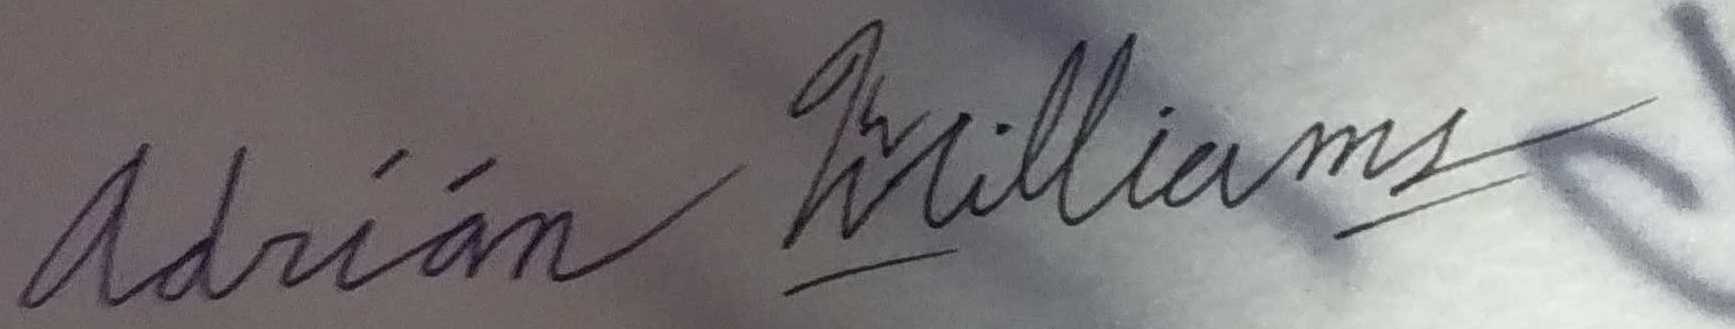 Adrián Williams